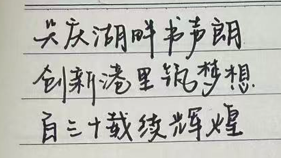 兴庆湖畔书声朗
创新港里筑梦想
百三十载续辉煌